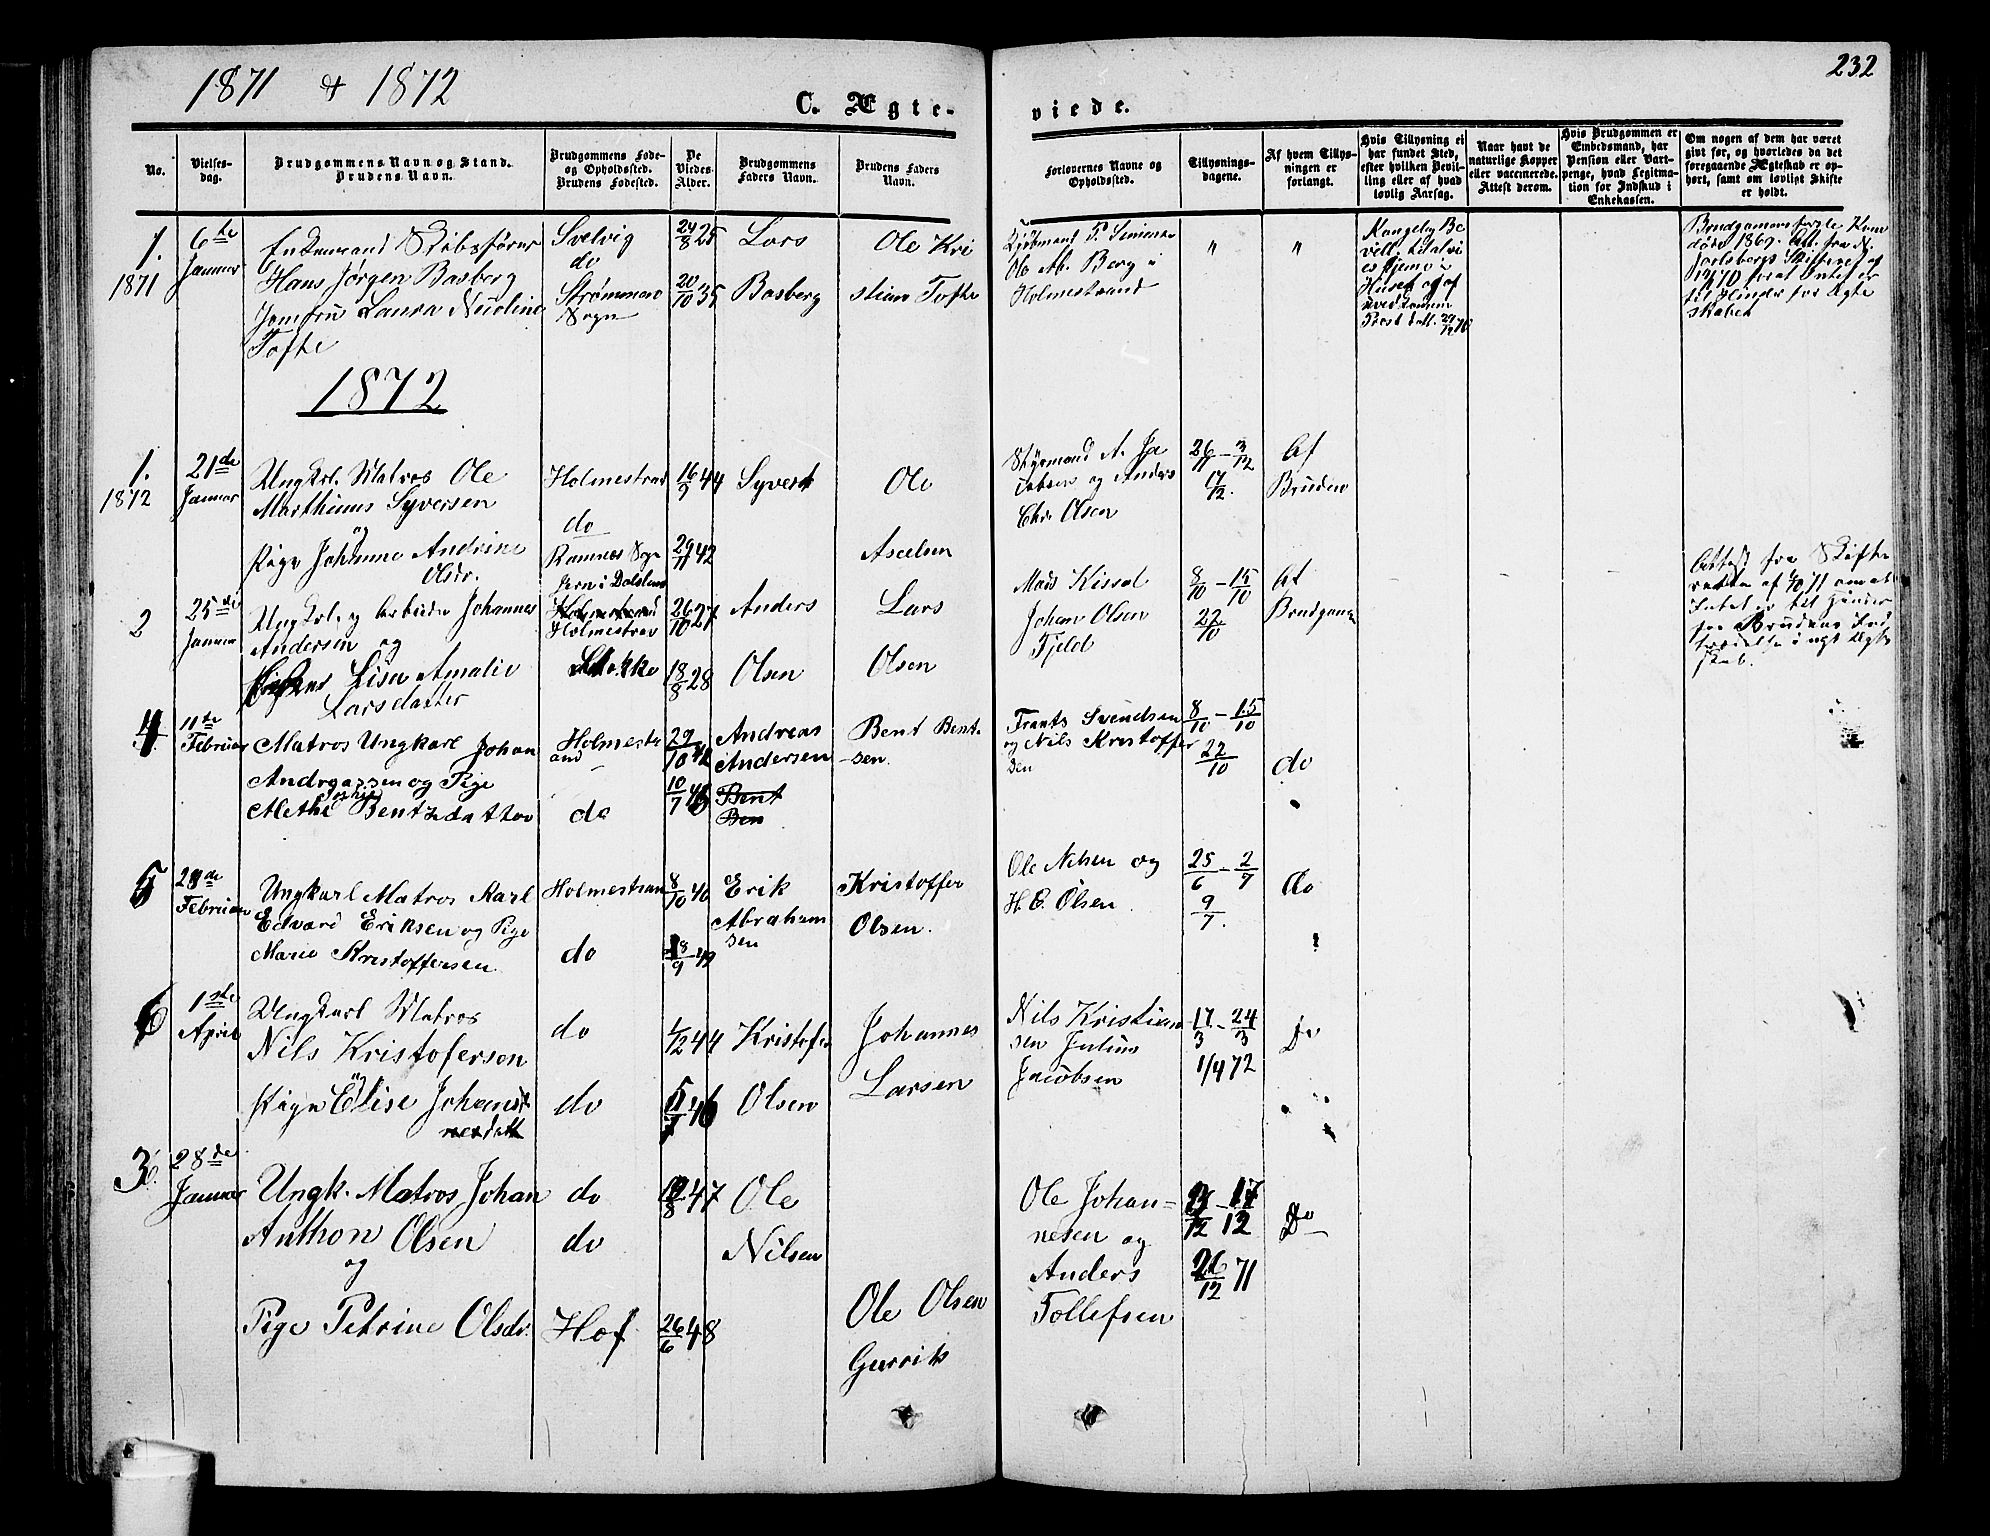 1871 & 1872
232
C. Ægte-
viede.
No.
Vielses-
dag.
Brudgommens Navn og Stand.
Brudens Navn.
Brudgommens Føde-
og Opholdssted.
Brudens Fødested.
De
Viedes
Alder.
Brudgommens
Faders Navn.
Brudens Faders
Navn.
Forlovernes Navne og
Opholdssted.
Tillysnings-
dagene.
Af hvem Tillys-
ningen er
forlangt.
Hvis Tillysning ei
har fundet Sted,
efter hvilken Bevil-
ling eller af hvad
lovlig Aarsag.
Naar havt de
naturlige Kopper
eller vaccinerede.
Attest derom.
Hvis Brudgommen er
Embedsmand, har
Pension eller Vart-
penge, hvad Legitma-
tion for Indskud i
Enkekassen.
Om nogen af dem har været
givt før, og hvorledes da det
foregaaende Ægteskab er op-
hørt, samt om lovligt Skifte
er holdt.
1.
1871
6te
Januar
Enkemand Skibsfører
Hans Jørgen Basberg
Jomfru Laura Nicoline
Tofte
Svelvig
do
Strømmen
Sogn
24/8 25
20/10 35
Lars
Basberg
Ole Kri
stian Tofte
Kjøbmand P. Simonsen
Ole M. Berg i
Holmestrand
"
"
Kongelig Be
vell. til at vi
es hjemme i
Huset og af
uvedkomm
Prest
Brudgommens forrige Kone
døde 1867. Att. fra N.
Jarlsbergs Skifteret af
for at Intet er
til Hinder for Ægte
skabet
1872
1.
1872
21de
Januar
Ungkl. Matros Ole
Marthinus Syversen
og
Pige Johanne Andrine
Olsdr.
Holmestrand
do
Ramnes Sogn
16/9 44
29/11 42
Syvert
Ole
Ascelsen
Styrmand A. Ja
cobsen og Anders
Chr. Olsen
26/11 - 3/12
17/12.
Af
Bruden
2
25de
Januar
Ungkl. og Arbeider Johannes
Andersen og
Lisa Amalie
Larsdatter
Holmestrand
Holmestrand
Stokke
26/10 27
18/8 28
Anders
Olsen
Lars
Olsen
Mads Kissal
Johan Olsen
Fjeld
8/10 - 15/10
22/10
Af
Brudgommen
Attest fra Skifte
retten af om at
Intet er til Hinder
for Brudens Ind
trædelse i nyt Ægte
skab.
4
11te
Februar
Matros Ungkarl Johan
Andreassen og Pige
Methe Sophie Bentsdatter
Holmestr
and
do
29/10 42
10/7 46
Andreas
Andersen
Bent
Ben
Bent Bent-
sen.
Frants Svendsen
og Nils Kristoffer
sen
8/10 - 15/10
22/10
do
5
Februar
Ungkarl Matros Karl
Edvard Eriksen og Pige
Marie Kristoffersen.
Holmestran
do
8/10 40
18/9 49
Erik
Abraham
sen
Kristoffer
Olsen.
Ole Nilsen og
H. C. Olsen.
25/6 - 2/7
9/7.
do
6
1ste
April
Ungkarl Matros
Nils Kristofersen
Pige Elise Johan
nesdatt
do
do
1/2 44
46
Kristofer
Olsen
Johannes
Larsen
Nils Kristian
sen Julius
Jacobsen
17/3 - 24/3
1/4 72
Do
3.
28de
Januar
Ungk. Matros Johan
Anthon Olsen
og
Pige Petrine Olsdr.
do
do
Hof
47
26/6 48
Ole
Nilsen
Ole Olsen
Gurrik
Ole Johan-
nesen og
Anders
Tollefsen
17/12
26/12 71
Do